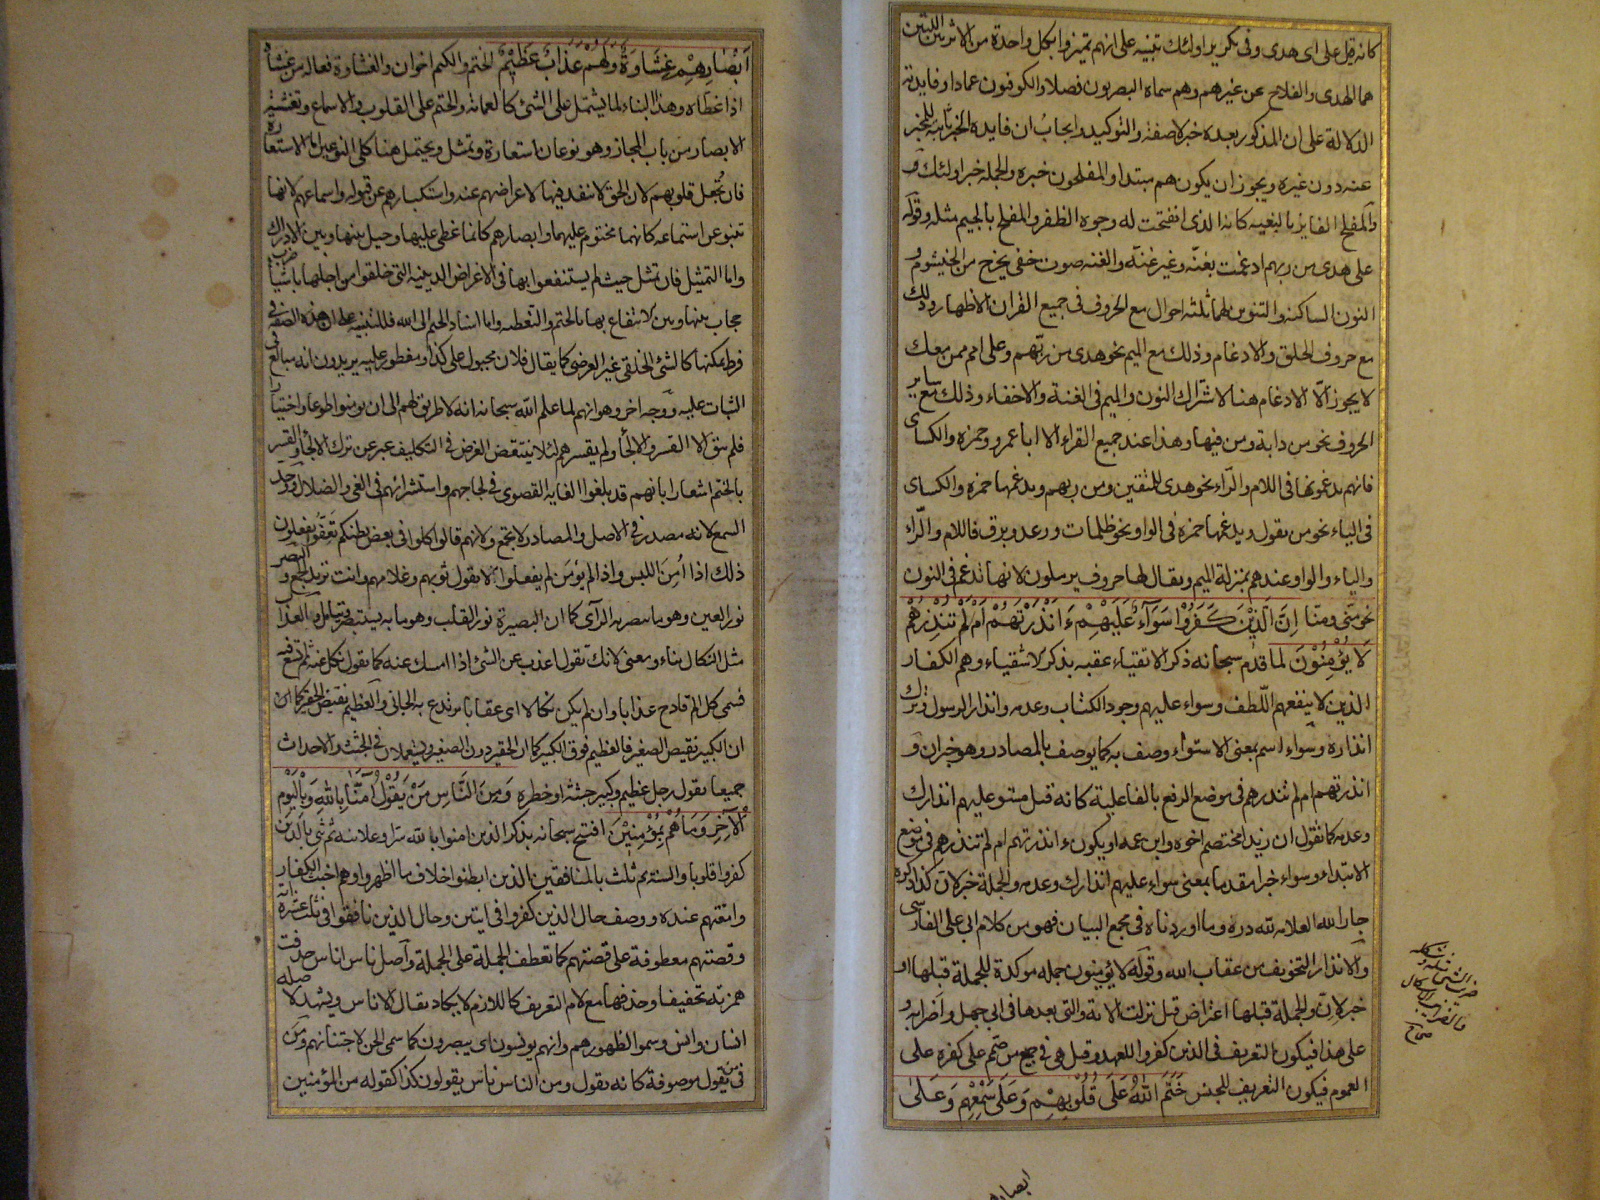 كانه قيل على اى هدى وفى تكرير اولئك تنبيه على انهم تميزوا بكل واحدة من الاثرتين اللتين
هما الهدى والفلاح عن غيرهم وهم سماه البصريون فصلا والكوفيون عمادا وفايدته
الدلالة على ان المذكور بعده خبر لا صفة والتوكيد وايجاب ان فايدة الخبر ثابتة للمخبر
عنه دون غيره ويجوز ان يكون هم مبتدا والمفلحون خبره والجملة خبر اولئك و
والمفلح الفايز بالبغية كانه الذى انفتحت له وجوه الظفر والمفلج بالجيم مثله وقوله
على هدى من ربهم ادغمت بغنّة وغير غنّة والغنه صوت خفى يخرج من الخيشوم و
النون الساكنة والتنوين لهما ثلثة احوال مع الحروف فى جميع القران الاظهار وذلك
مع حروف الحلق والادغام وذلك مع الميم نحو هدى من ربّهم وعلى امم ممن معك
لا يجوز الّا الادغام هنا لاشتراك النون والميم فى الغنة والاخفاء وذلك مع ساير
الحروف نحو من دابة ومن فيها وهذا عند جميع القراء الا ابا عمرو وحمزة والكساى
فانهم يدغمونها فى اللام والرّاء نحو هدى للمتقين ومن ربهم ويدغمها حمزة والكساى
فى الياء نحو من يقول ويدغمها حمزة فى الواو نحو ظلمات ورعد وبرق فاللام والرّاء
والياء والواو عندهم بمنزلة الميم ويقال لها حروف يرملون لانها تدغم فى النون
نحو منّى ومنّا اِنَّ الَّذِيْنَ كَفَرُوْا سَوَآءٌ عَلَيْهِمْ ءَاَنْذَرْتَهُمْ اَمْ لَمْ تُنْذِرْهُمْ
لَا يُؤْمِنُوْنَ لما قدّم سبحانه ذكر الاتقياء عقبه بذكر الاشقياء وهم الكفار
الذين لا ينفعهم اللّطف وسواء عليهم وجود الكتاب وعدمه وانذار الرسول وترك
انذاره وسواء اسم بمعنى الاستواء وصف به كما يوصف بالمصادر وهو خبر ان و
انذرتهم ام لم تنذرهم فى موضع الرفع بالفاعلية كانه قيل مستو عليهم انذارك
وعدمه كما تقول ان زيدا مختصم اخوه وابن عمه او يكون ءانذرتهم ام لم تنذرهم فى موضع
الابتداء وسواء خبرا مقدما بمعنى سواء عليهم انذارك وعدمه والجملة خبر لانّ كذا ذكره
جار الله العلامة لله دره وما اوردناه فى مجمع البيان فهو من كلام ابى على الفارسى
والانذار التخويف من عقاب الله وقوله لا يؤمنون جملة موكدة للجملة قبلها او
خبر لانّ والجملة قبلها اعتراض قيل نزلت الاية والتى بعدها فى ابى جهل واضرابه و
على هذا فيكون التعريف فى الذين كفروا للعهد وقيل هى فى جميع من صمّم على كفره على
العموم فيكون التعريف للجنس خَتَمَ اللّٰهُ عَلَى قُلُوْبِهِمْ وَعَلَى سَمْعِهِمْ وَعَلٰى
ابصارهم
اَبْصَارِهِمْ غِشَاوَةٌ وَلَهُمْ عَذَابٌ عَظِيْمٌ الختم والكتم اخوان والغشاوة فعالة من غشاه
اذا غطاه وهذا البناء لما يشتمل على الشئ كالعمامة والختم على القلوب والاسماع وتغشية
الابصار من باب المجاز وهو نوعان استعارة وتمثيل ويحتمل هنا كلى النوعين اما الاستعارة
فان تُجعل قلوبهم لان الحق لا ينفد فيها لاعراضهم عنه واستكبارهم عن قبوله واسماعهم لانها
تنبو عن استماعه كانهما مختوم عليهما وابصارهم كانما غطى عليها وحيل بينها وبين الادراك
واما التمثيل فان تمثل حيث لم يستنفعوا بها فى الاغراض الدينية التى خلقوا من اجلها باشياء ضرب
حجاب بينها وبين الانتفاع بها بالختم والتغطية واما اسناد الختم الى الله فللتنبيه على ان هذه الصفة فى
فرط تمكنها كالشئ الخلقى غير العرضى كما يقال فلان مجبول على كذا ومفطور عليه يريدون انه مبالغ فى
الثبات عليه ووجه اخر وهو انهم لما علم الله سبحانه انه لا طريق لهم الى ان يومنوا طوعا واختيارا
فلم يبق الا القسر والالجاء ولم يقسرهم لئلا ينتقض الغرض فى التكليف عبر عن ترك الالجاء والقسر
بالختم اشعارا بانهم قد بلغوا الغاية القصوى فى لجاجهم واستشرائهم فى الغى والضلال ووحد
السمع لانه مصدر فى الاصل والمصادر لا تجمع ولانهم قالوا كلوا فى بعض بطنكم تعفّوا يفعلون
ذلك اذا اُمِنَ اللبس واذا لم يؤمَن لم يفعلوا لا يقول ثوبهم وغلامهم وانت تريد الجمع والبصر
نور العين وهو ما يبصر به الرآى كما ان البصيرة نور القلب وهو ما به يستبصر ويتامل والعذاب
مثل النكال بناء ومعنى لانك تقول اعذب عن الشئ اذا امسك عنه كما تقول نكل عنه ثم اتسع فيه
فسمى كل الم قادح عذابا وان لم يكن نكالا اى عقابا يرتدع به الجانى والعظيم نقيض الحقير كما ان
ان الكبير نقيض الصغير فالعظيم فوق الكبير كما ان الحقير دون الصغير ويستعملان فى الجثث والاحداث
جميعا يقول رجل عظيم وكبير جثته او خطره وَمِنَ النَّاسِ مَنْ يَقُوْلُ اٰمَنَّا بِاللهِ وَبِالْيَوْمِ
الْاٰخِرِ وَمَا هُمْ بِمُؤْمِنِيْنَ افتتح سبحانه بذكر الذين امنوا بالله سرا وعلانية ثم ثنّى بالذين
كفروا قلوبا والسنة ثم ثلث بالمنافقين الذين ابطنوا خلاف ما اظهروا وهم اخبث الكفار
وامقتهم عنده ووصف حال الذين كفروا فى ايتين وحال الذين نافقوا فى ثلث عشرة اية
وقصتهم معطوفة على قصتهم كما تعطف الجملة على الجملة وآصل ناس اناس حذفت
همزته تخفيفا وحذفها مع لام التعريف كاللازم لا يكاد يقال الاناس ويشهد لاصله
انسان وانس وسموا لظهورهم وانهم يونسون اى يبصرون كما سمى الجن لاجتنانهم ومن
فى من يقول موصوفة كانه يقول ومن الناس ناس يقولون كذا كقوله من المؤمنين